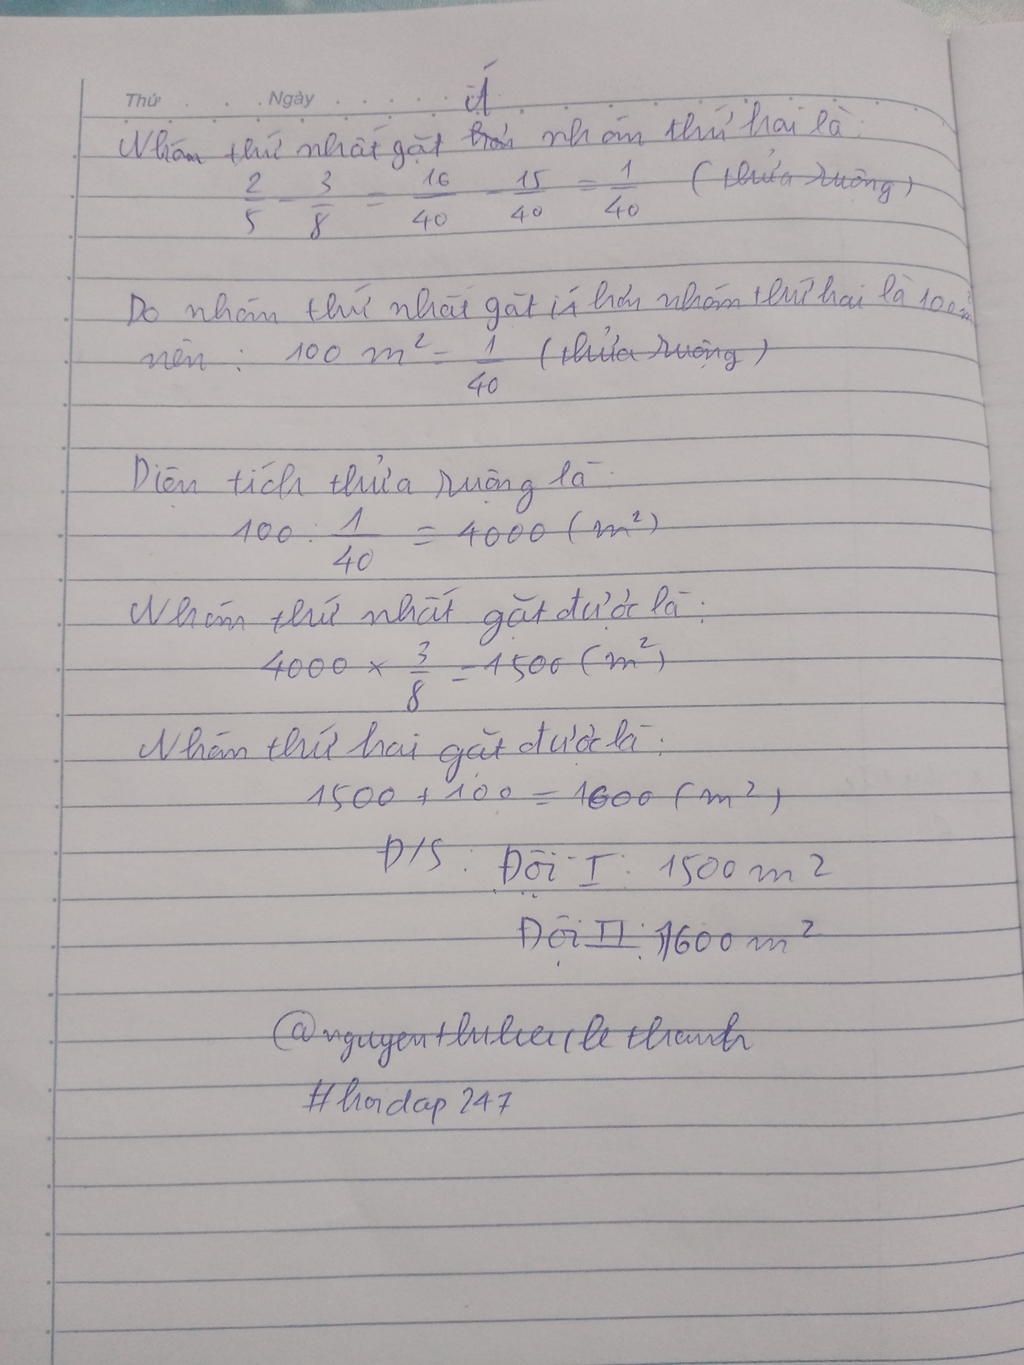 Thứ . . . . Ngày . . . . . . ít
Nhóm thứ nhất gặt hơn nhóm thứ hai là:
2/5 - 3/8 = 16/40 - 15/40 = 1/40 (thửa ruộng)
Do nhóm thứ nhất gặt ít hơn nhóm thứ hai là 100m²
nên: 100 m² = 1/40 (thửa ruộng)
Diện tích thửa ruộng là:
100 : 1/40 = 4000 (m²)
Nhóm thứ nhất gặt được là:
4000 × 3/8 = 1500 (m²)
Nhóm thứ hai gặt được là:
1500 + 100 = 1600 (m²)
Đ/S: Đội I: 1500 m2
Đội II: 1600 m²
#hoidap247